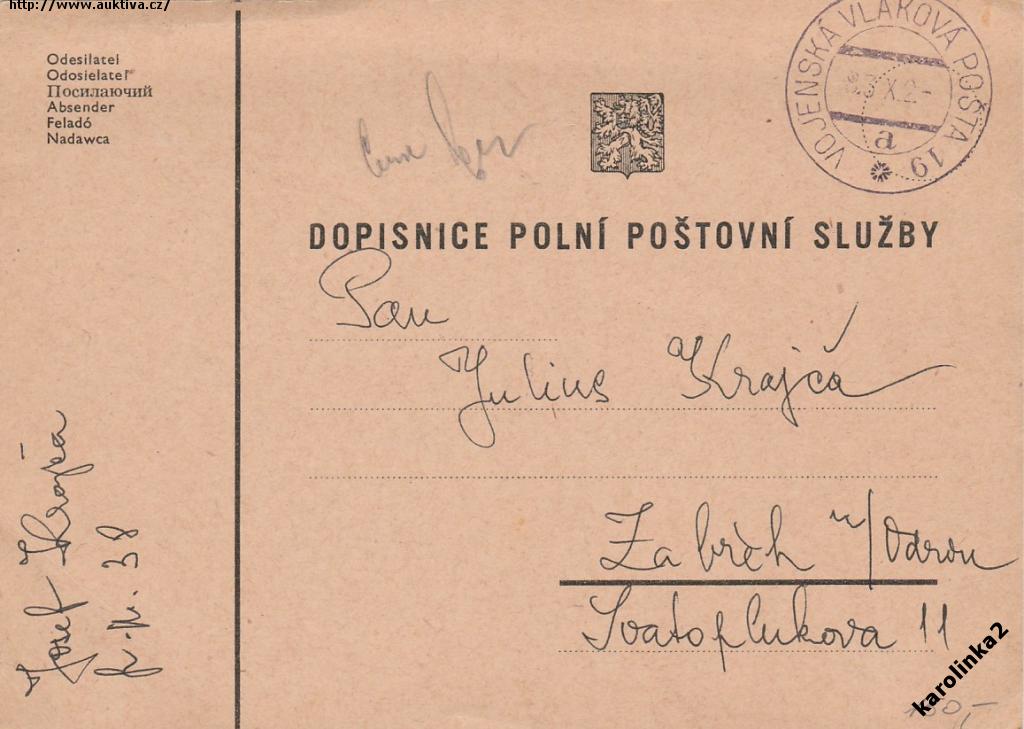 http://www.auktiva.cz/
Odesilatel
Odosielateľ
Посилаючий
Absender
Feladó
Nadawca
VOJENSKÁ VLAKOVÁ POŠTA 19
a
DOPISNICE POLNÍ POŠTOVNÍ SLUŽBY
Pan
Julius Krajča
Zábřeh n/Odrou
Svatoplukova 11
Josef Krajča
38
karolinka2